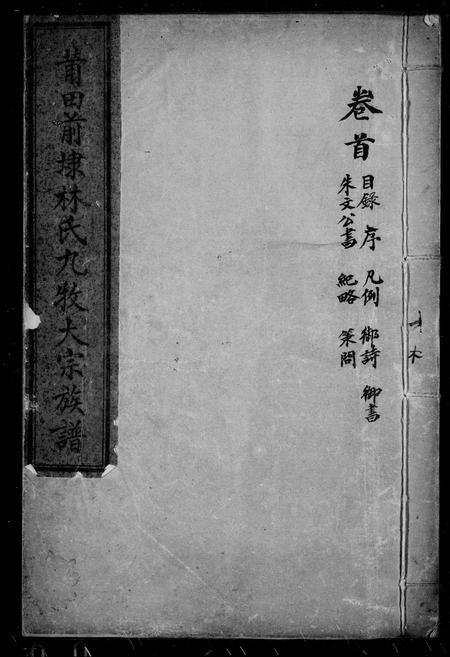 卷首
目錄 序 凡例 御詩 御書
朱文公書 紀略 策問
莆田前埭林氏九牧大宗族譜